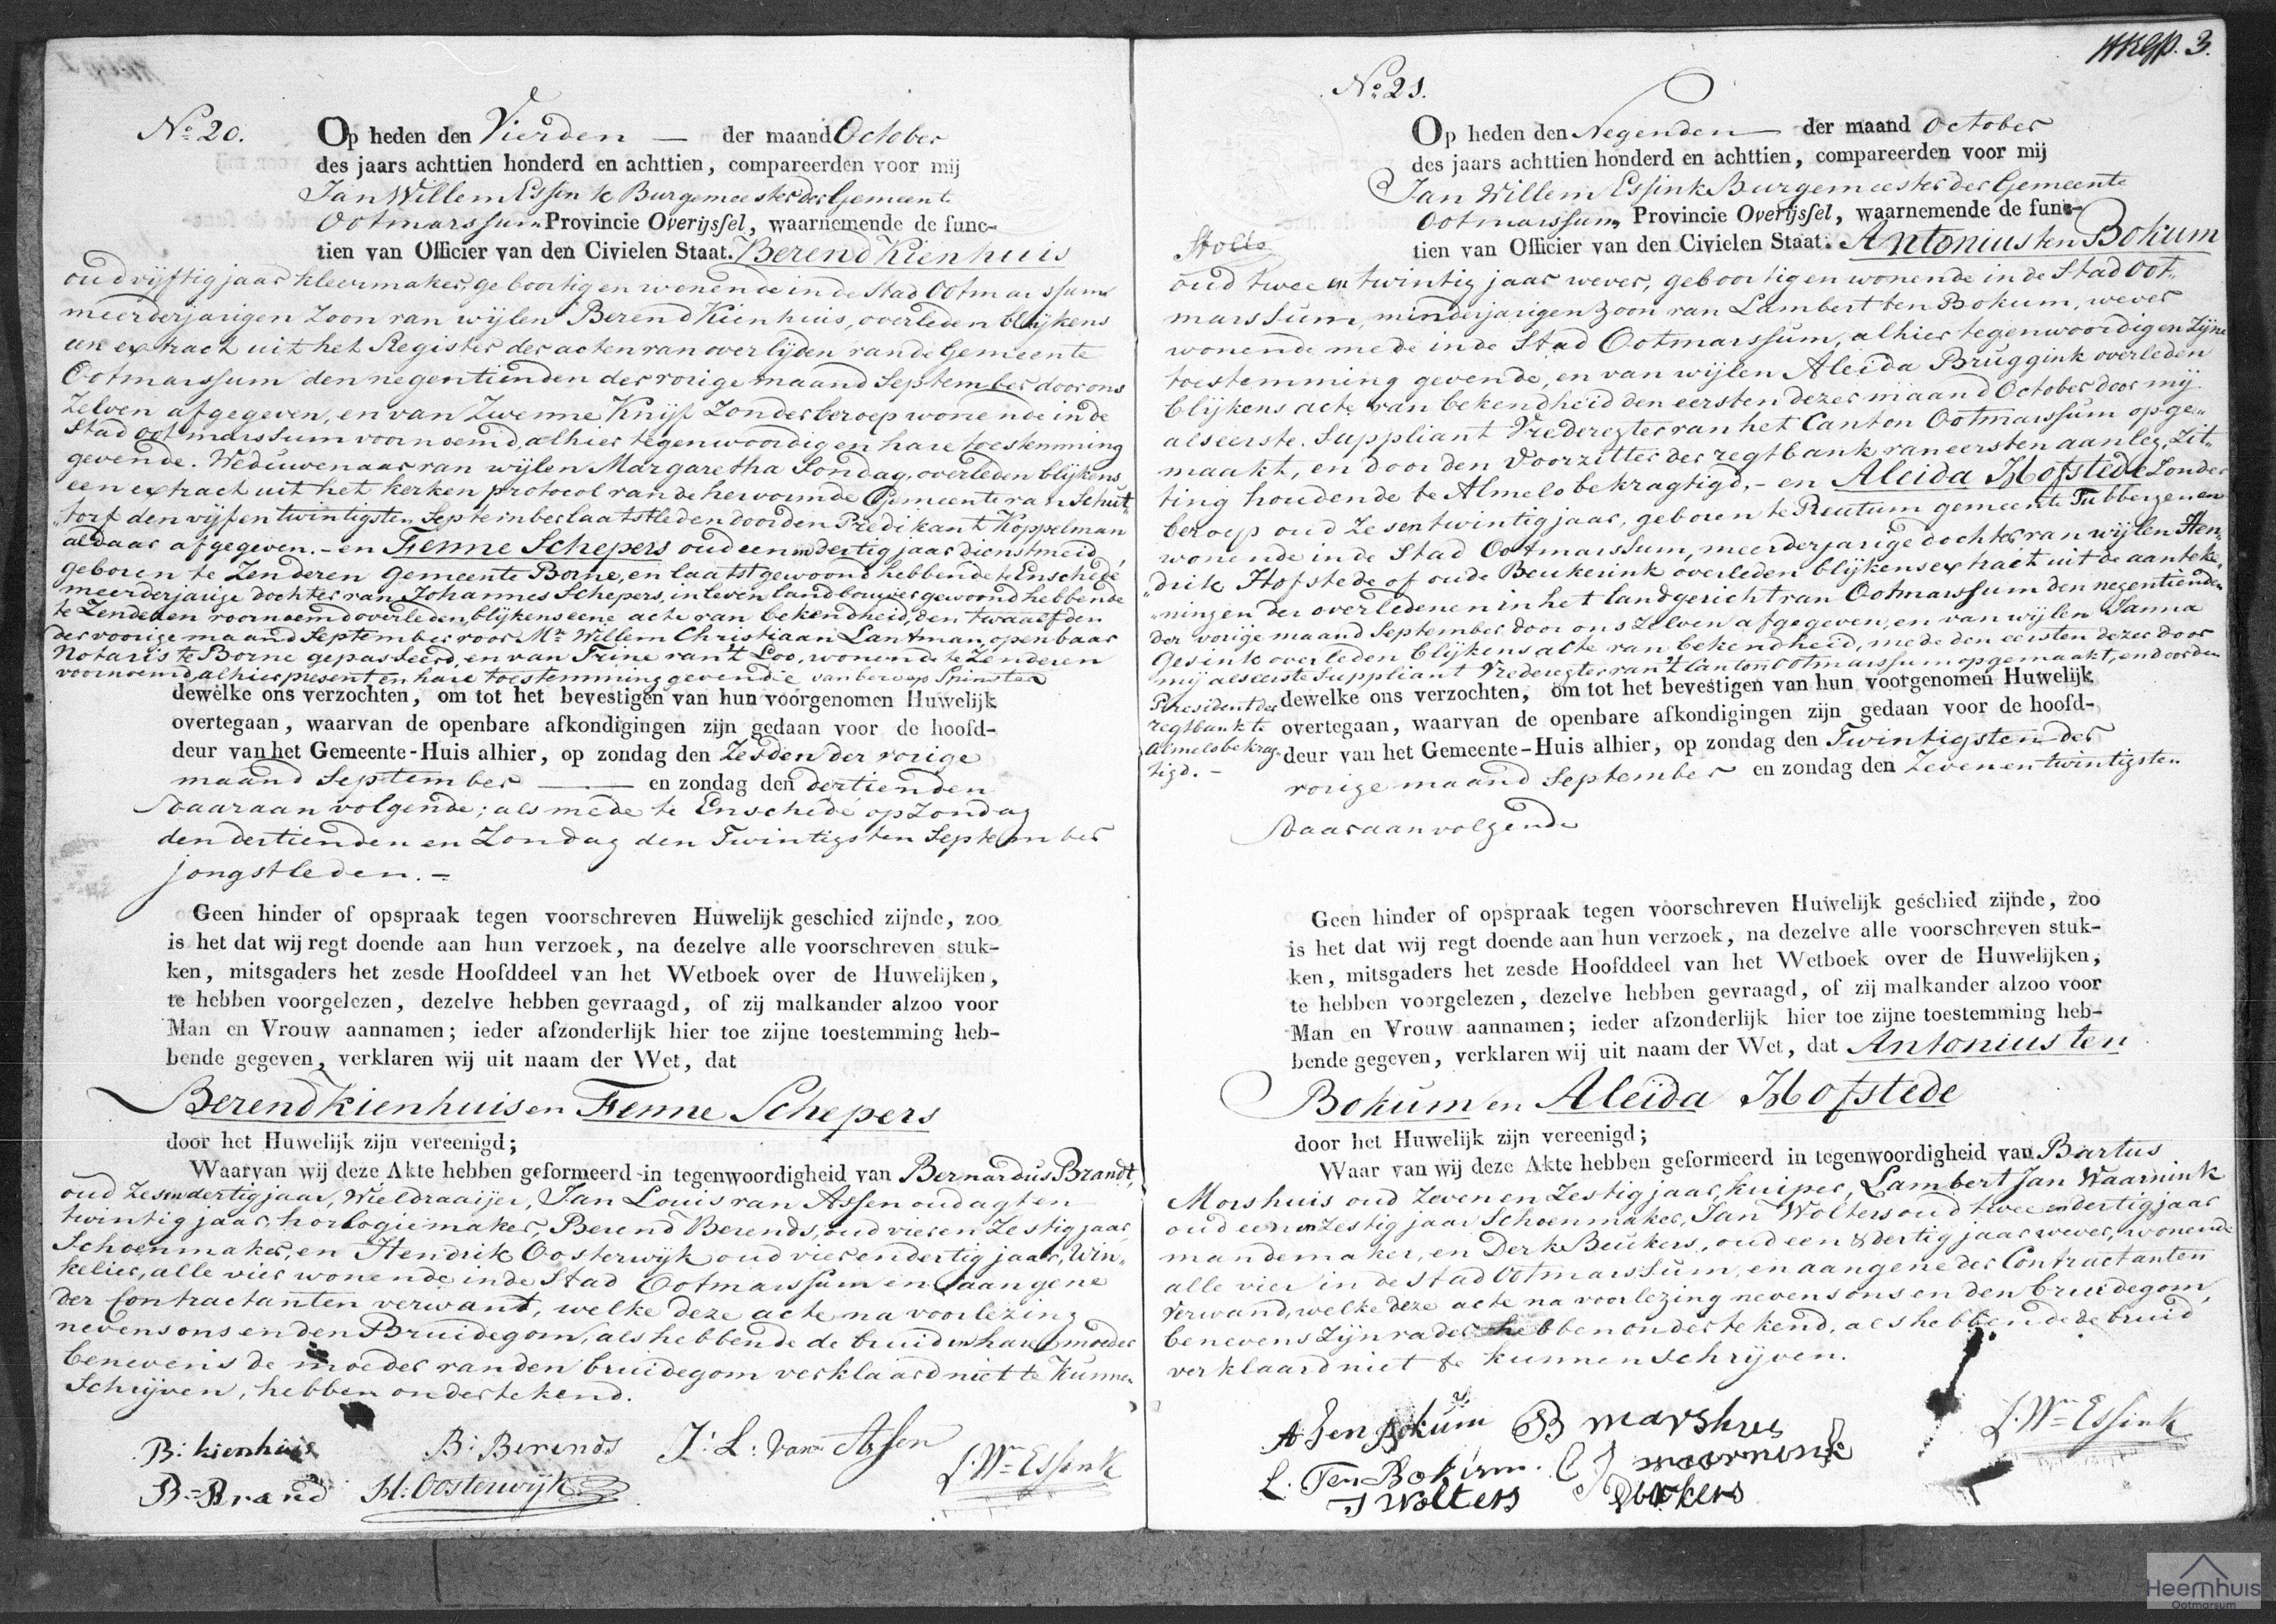 No. 20.
Op heden den Vierden — der maand October
des jaars achttien honderd en achttien, compareerden voor mij
Jan Willem Essink Burgemeester der Gemeente
Ootmarssum Provincie Overijssel, waarnemende de func-
tien van Officier van den Civielen Staat. Berend Kienhuis
oud vijftig jaar kleermaker, geboortig en wonende in de Stad Ootmarssum
meerderjarigen Zoon van wijlen Berend Kienhuis, overleden blijkens
een extract uit het Register der acten van overlijden van de Gemeente
Ootmarssum den negentienden der vorige maand September door ons
Zelven afgegeven, en van Zwenne Knijf Zonder beroep wonende in de
Stad Ootmarssum voornoemd, alhier tegenwoordig en hare toestemming
gevende. Weduwenaar van wijlen Margaretha Sondag, overleden blijkens
een extract uit het kerken protocol van de hervormde Gemeente van Schut„
„torf den vijf en twintigsten September laatstleden door den Predikant Koppelman
aldaar afgegeven. – en Fenne Schepers oud een en dertig jaar dienstmeid
geboren te Zenderen Gemeente Borne, en laatst gewoond hebbende te Enschedé
meerderjarige dochter van Johannes Schepers, in leven landbouwer gewoond hebbende
te Zenderen voornoemd overleden, blijkens eene acte van bekendheid, den twaalfden
der voorige maand September voor Mr. Willem Christiaan Lantman, openbaar
Notaris te Borne gepasseerd, en van Trine van't Loo, wonende te Zenderen
voornoemd, alhier present en hare toestemming gevende van beroep Spinster
dewelke ons verzochten, om tot het bevestigen van hun voorgenomen Huwelijk
overtegaan, waarvan de openbare afkondigingen zijn gedaan voor de hoofd-
deur van het Gemeente-Huis alhier, op zondag den Zesden der vorige
maand September — en zondag den dertienden
daaraan volgende; als mede te Enschedé op Zondag
den dertienden en Zondag den Twintigsten September
jongstleden. –
Geen hinder of opspraak tegen voorschreven Huwelijk geschied zijnde, zoo
is het dat wij regt doende aan hun verzoek, na dezelve alle voorschreven stuk-
ken, mitsgaders het zesde Hoofddeel van het Wetboek over de Huwelijken,
te hebben voorgelezen, dezelve hebben gevraagd, of zij malkander alzoo voor
Man en Vrouw aannamen; ieder afzonderlijk hier toe zijne toestemming heb-
bende gegeven, verklaren wij uit naam der Wet, dat
Berend Kienhuis en Fenne Schepers
door het Huwelijk zijn vereenigd;
Waarvan wij deze Akte hebben geformeerd in tegenwoordigheid van Bernardus Brandt,
oud Zes en dertig jaar, Wieldraaijer, Jan Louis van Assen oud agt en
twintig jaar, horlogiemaker, Berend Berends, oud vier en Zestig jaar,
Schoenmaker, en Hendrik Oosterwijk oud vier en dertig jaar, Win„
kelier, alle vier wonende in de Stad Ootmarssum en aan gene
der Contractanten verwant, welke deze acte na voorlezing
nevens ons en den Bruidegom, als hebbende de bruid en hare moeder
benevens de moeder van den bruidegom verklaard niet te kunnen
Schrijven, hebben ondertekend.
B: kienhuis B: Berends J: L: van Assen
B=Brand H: Oosterwijk J. Wm= Essink
WRGp. 3.
No. 21.
Op heden den Negenden — der maand October
des jaars achttien honderd en achttien, compareerden voor mij
Jan Willem Essink Burgemeester der Gemeente
Ootmarssum, Provincie Overijssel, waarnemende de func-
tien van Officier van den Civielen Staat. Antonius ten Bokum
oud twee en twintig jaar wever, geboortig en wonende in de Stad Oot„
marssum, minderjarigen Zoon van Lambert ten Bokum, wever
wonende mede in de Stad Ootmarssum, alhier tegenwoordig en Zijne
toestemming gevende, en van wijlen Aleida Bruggink overleden
blijkens acte van bekendheid den eersten dezer maand October door mij
als eerste Suppliant Vrederegter van het Canton Ootmarssum opge„
maakt, en door den Voorzitter der regtbank van eersten aanleg, Zit„
ting houdende te Almelo bekragtigd, – en Aleida Hofstede Zonder
beroep oud Zes en twintig jaar, geboren te Reutum gemeente Tubbergen en
wonende in de Stad Ootmarssum, meerderjarige dochter van wijlen Hen„
„drik Hofstede of oude Beukerink overleden blijkens extract uit de aanteke„
„ningen der overledenen in het landgericht van Ootmarssum den negentienden
der vorige maand September door ons Zelven afgegeven, en van wijlen Janna
Gesink overleden blijkens acte van bekendheid, mede den eersten dezer door
mij als eerste Suppliant Vrederegter van 't Canton Ootmarssum opgemaakt, en door den
President der
regtbank te
Almelo bekrag„
tigd. –
dewelke ons verzochten, om tot het bevestigen van hun voorgenomen Huwelijk
overtegaan, waarvan de openbare afkondigingen zijn gedaan voor de hoofd-
deur van het Gemeente-Huis alhier, op zondag den Twintigsten der
vorige maand September en zondag den Zeven en twintigsten
daaraanvolgende
Geen hinder of opspraak tegen voorschreven Huwelijk geschied zijnde, zoo
is het dat wij regt doende aan hun verzoek, na dezelve alle voorschreven stuk-
ken, mitsgaders het zesde Hoofddeel van het Wetboek over de Huwelijken,
te hebben voorgelezen, dezelve hebben gevraagd, of zij malkander alzoo voor
Man en Vrouw aannamen; ieder afzonderlijk hier toe zijne toestemming heb-
bende gegeven, verklaren wij uit naam der Wet, dat Antonius ten
Bokum en Aleida Hofstede
door het Huwelijk zijn vereenigd;
Waar van wij deze Akte hebben geformeerd in tegenwoordigheid van Bartus
Morshuis oud Zeven en Zestig jaar, kuiper, Lambert Jan Waarnink
oud een en Zestig jaar Schoenmaker, Jan Wolters oud twee en dertig jaar
mandemaker, en Derk Beukers, oud een & dertig jaar wever, wonende
alle vier in de Stad Ootmarssum, en aan gene der Contractanten
verwand, welke deze acte na voorlezing nevens ons en den bruidegom,
benevens Zijn vader hebben ondertekend, als hebbende de bruid
verklaard niet te kunnen Schrijven.
A Ten Bokum B marshus J. Wm= Essink
L. Ten Bokum.
J Wolters
Heemhuis
Ootmarsum